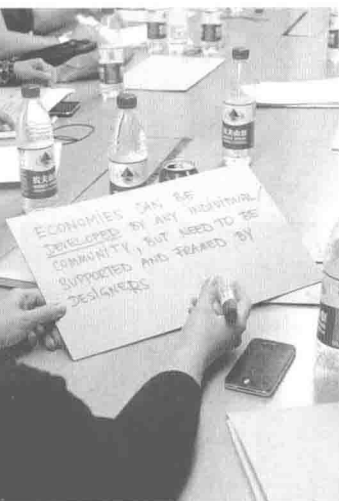 ECONOMIES CAN BE
DEVELOPED BY ANY INDIVIDUAL/
COMMUNITY, BUT NEED TO BE
SUPPORTED AND FRAMED BY
DESIGNERS
农夫山泉
农夫山泉